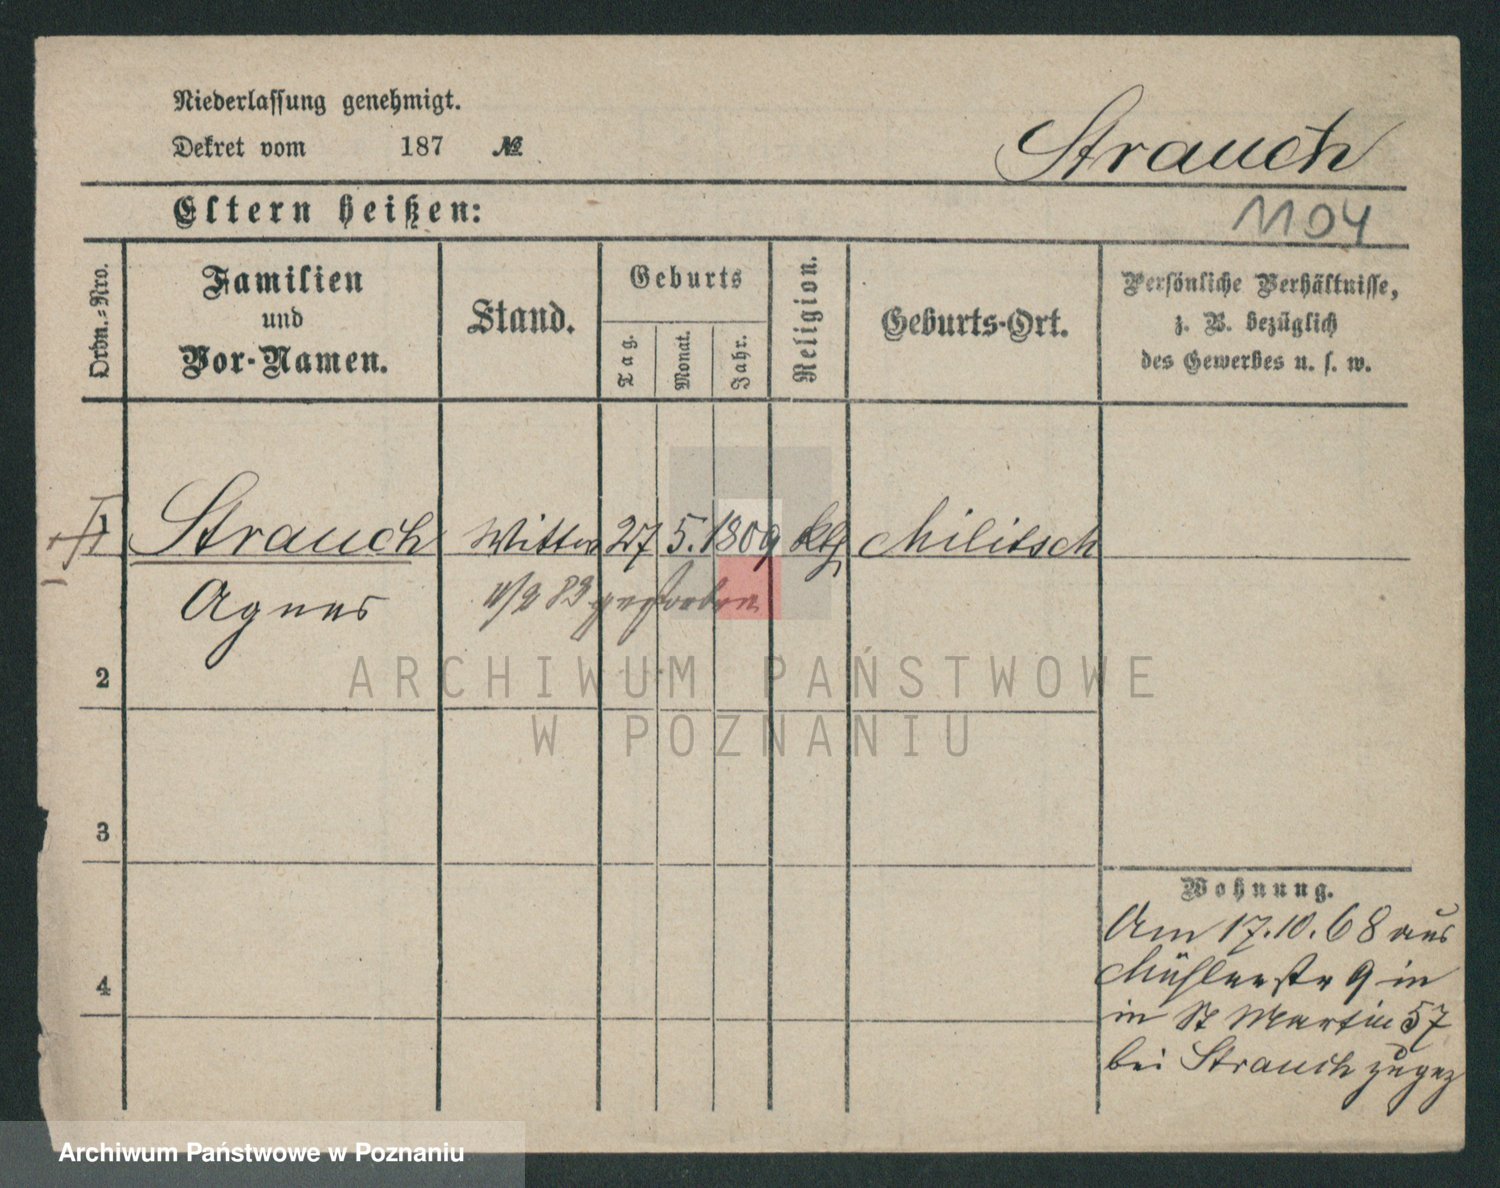 Niederlassung genehmigt.
Dekret vom 187 №
Strauch
Eltern heißen:
1104
Ordn.-Nro.
Familien
und
Vor-Namen.
Stand.
Geburts
Tag.
Monat.
Jahr.
Religion.
Geburts-Ort.
Persönliche Verhältnisse,
z. B. bezüglich
des Gewerbes u. s. w.
1 Strauch Wittwe 27 5. 1809 ktg Militsch
Agnes
gestorben
2
ARCHIWUM PAŃSTWOWE
W POZNANIU
3
4
Wohnung.
Am 17.10.68 aus
Mühlenstr 9 in
in St Martin 57
bei Strauch zugez
Archiwum Państwowe w Poznaniu